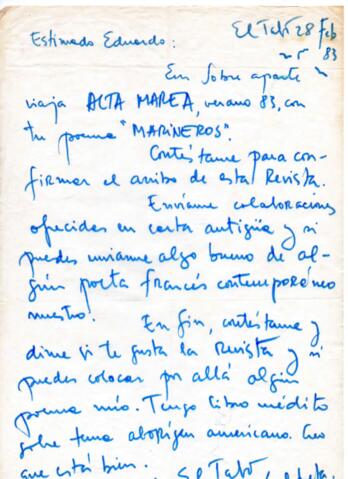 El Tabo 28 Feb
83
Estimado Eduardo:
En sobre aparte
viaja ALTA MAREA, verano 83, con
tu poema "MARINEROS".
Contéstame para con-
firmar el arribo de esta Revista.
Envíame colaboraciones
ofrecidas en carta antigüa y si
puedes enviame algo bueno de al-
gún poeta francés contemporáneo
nuestro.
En fin, contéstame y
dime si te gusta la Revista y si
puedes colocar por allá algún
poema mío. Tengo libro inédito
sobre tema aborigen americano. Creo
que está bien.
El Tabo,